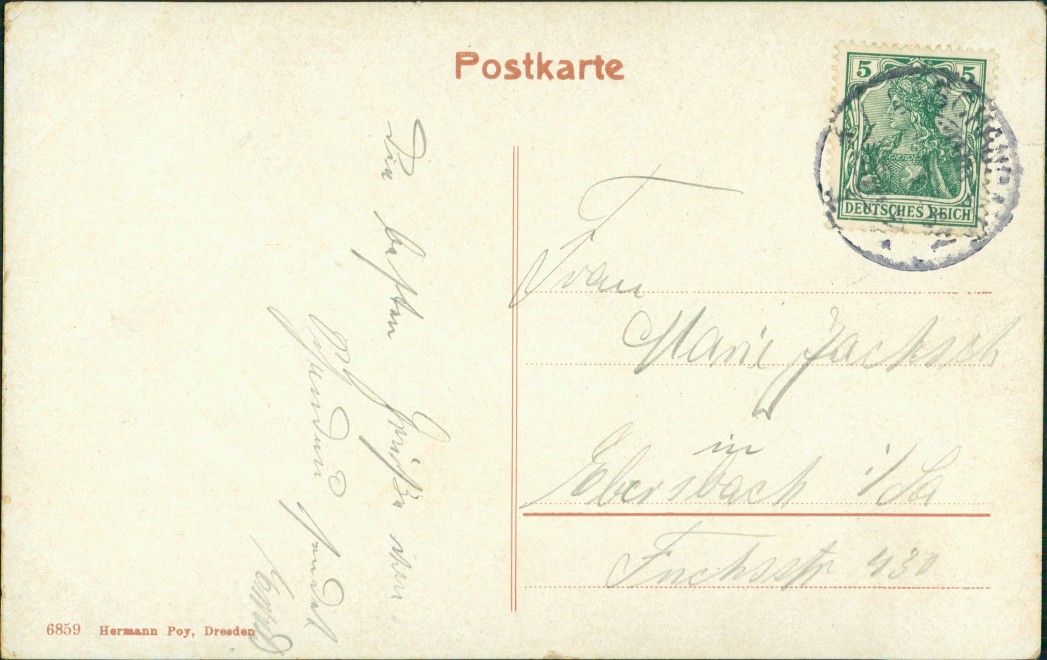 Postkarte
5 5
DEUTSCHES REICH
Die besten Grüße
Schandau sendet
Frau
Marie Jacksch
in
Ebersbach i/Sa
Fuchsstr 430
6859 Hermann Poy, Dresden